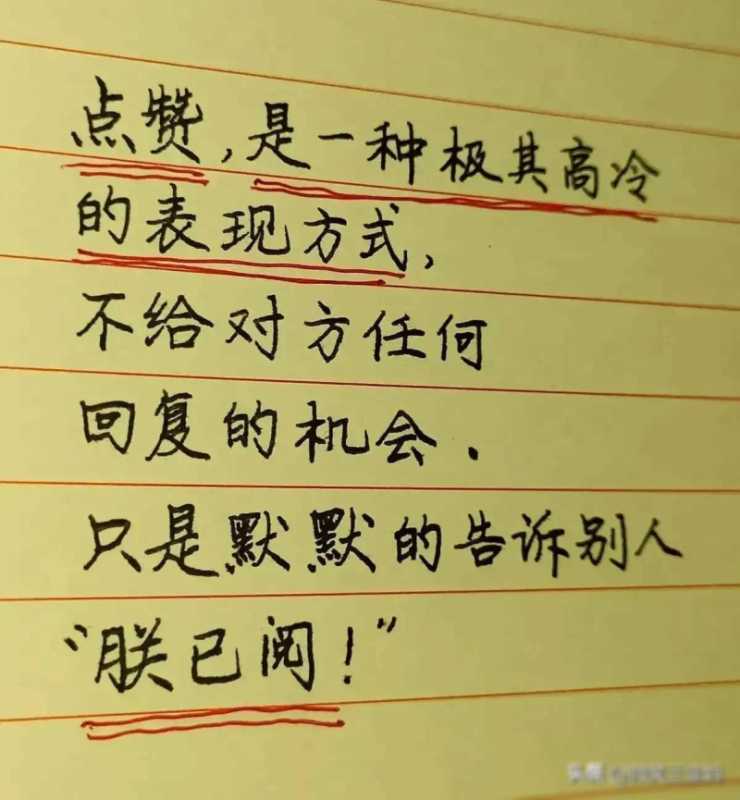 点赞，是一种极其高冷
的表现方式，
不给对方任何
回复的机会．
只是默默的告诉别人
“朕已阅！”
头条